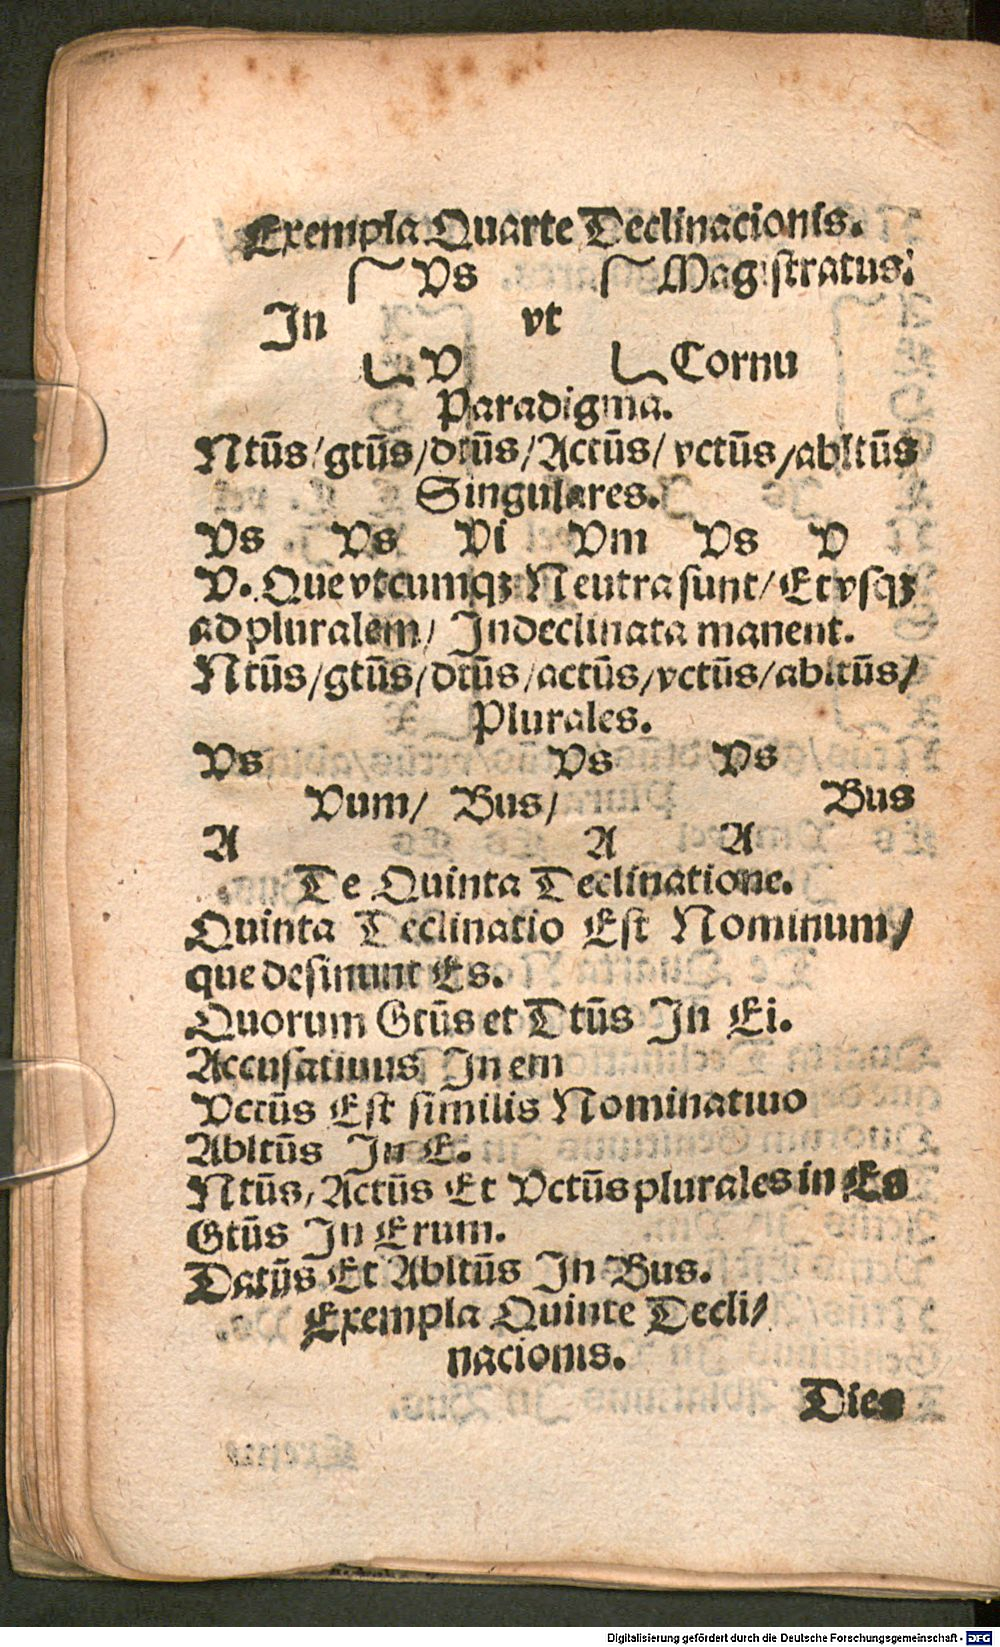 Exempla Quarte Declinacionis.
Vs Magistratus:
In vt
V Cornu
Paradigma.
Ntūs/gtūs/dtūs/Actūs/vctūs/abltūs
Singulares.
Vs Vs Vi Vm Vs V
V. Que vtcumqꝫ Neutra sunt/Et vsqꝫ
ad pluralem/ Indeclinata manent.
Ntūs/gtūs/dtūs/actūs/vctūs/abltūs/
Plurales.
Vs Vs Vs
Vum/ Bus/ Bus
A A A
De Quinta Declinatione.
Quinta Declinatio Est Nominum/
que desinunt Es.
Quorum Gtūs et Dtūs In Ei.
Accusatiuus In em
Vctūs Est similis Nominatiuo
Abltūs In E.
Ntūs, Actūs Et Vctūs plurales in Es
Gtūs In Erum.
Datūs Et Abltūs In Bus.
Exempla Quinte Decli/
nacionis.
Dies
Digitalisierung gefördert durch die Deutsche Forschungsgemeinschaft - DFG